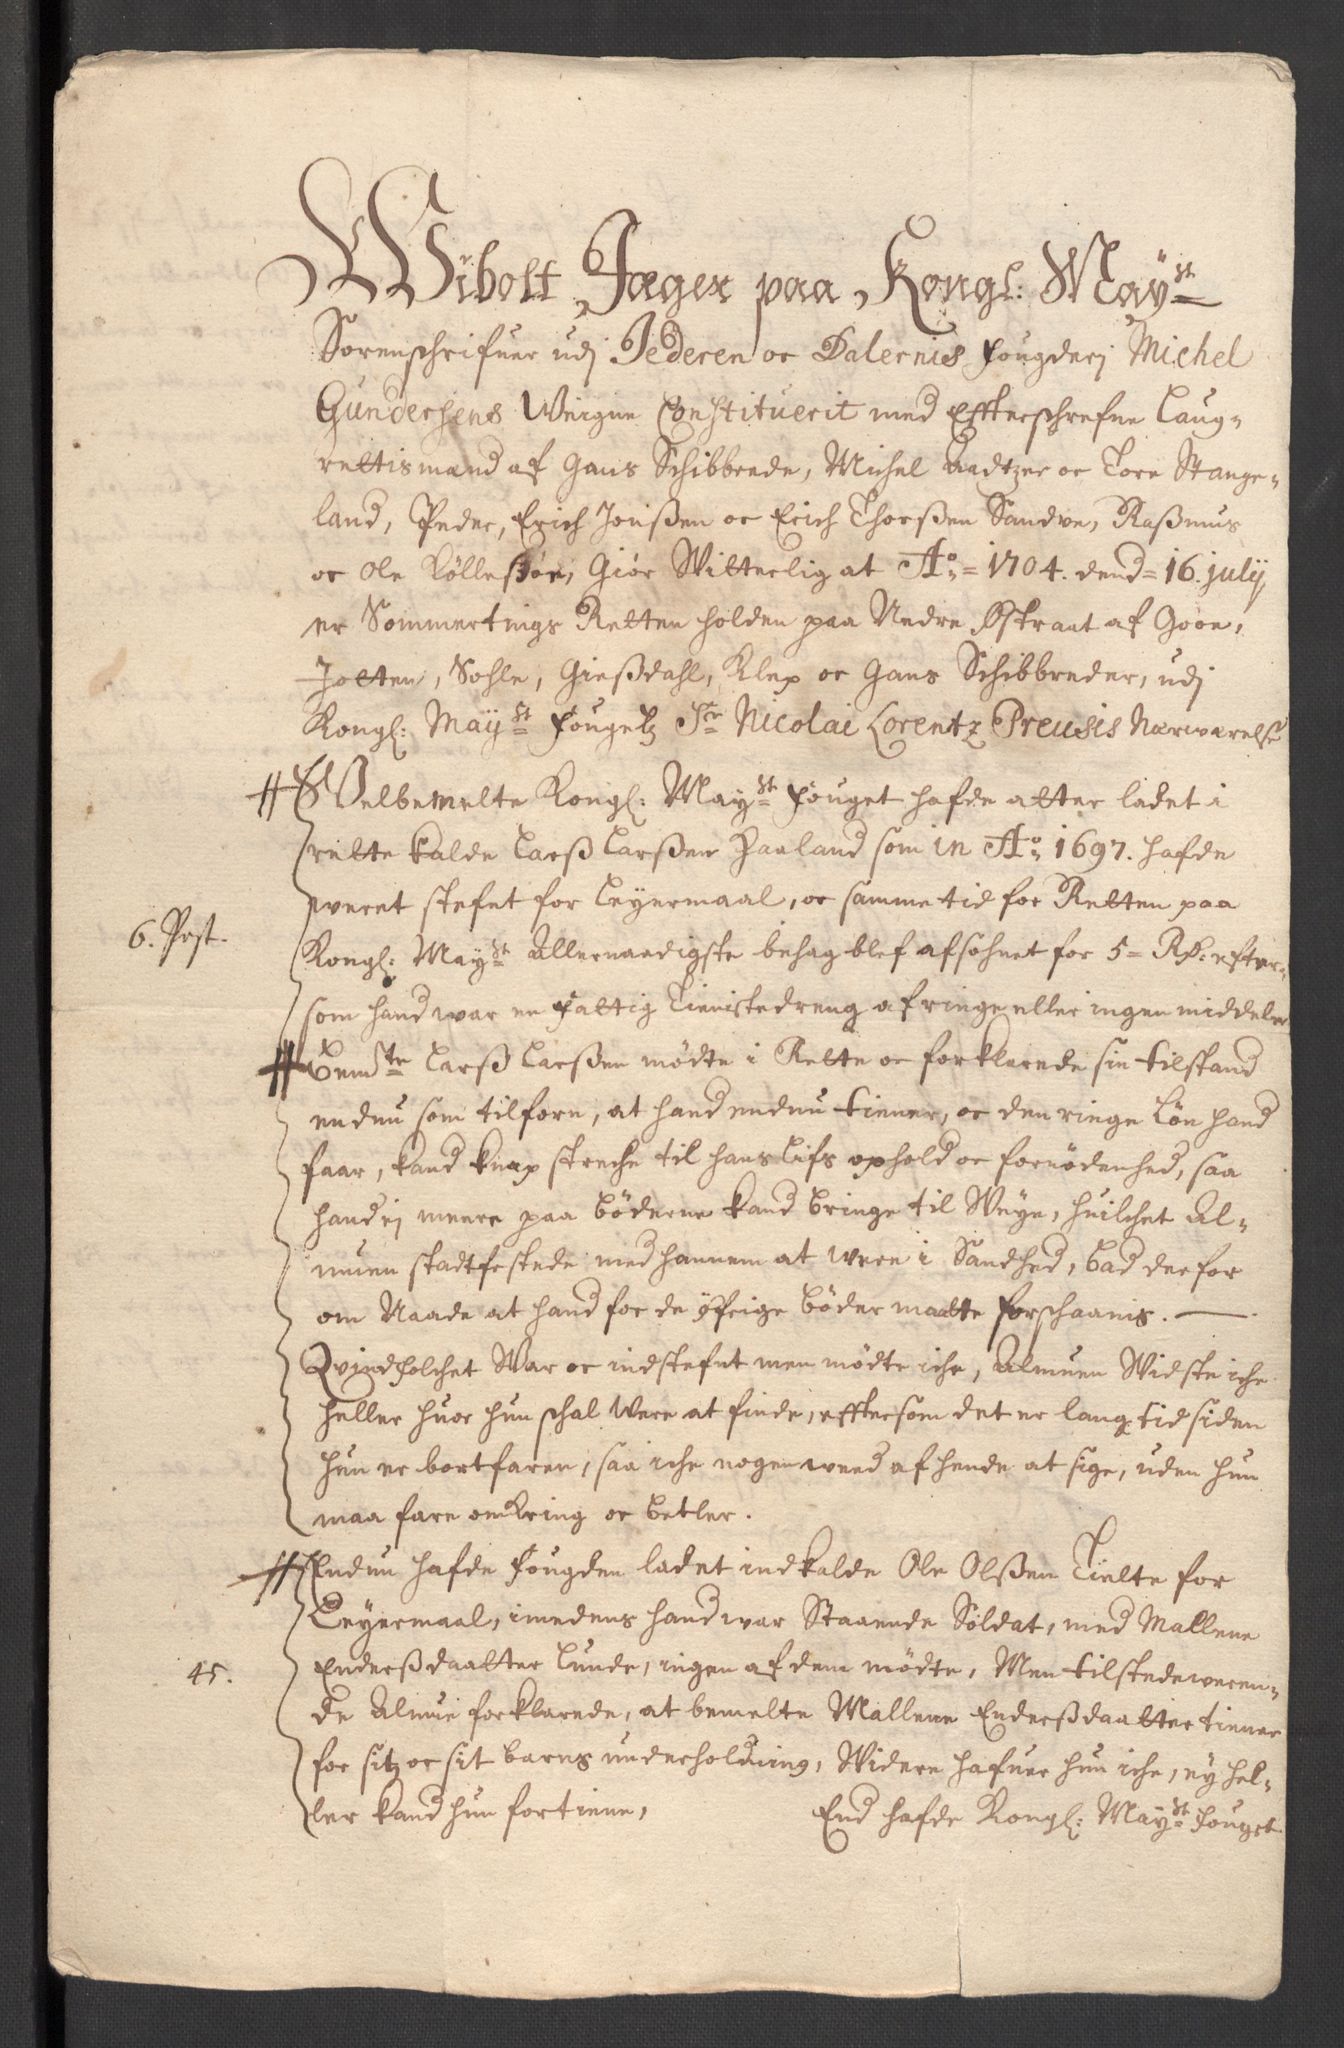 Wibolt Jæger paa Kongl: Maÿst
Sorenschrifuer udj Jederen oc Dalernis fougderj Michel
Gundersens Weigne Constituerit med Effterschrefne Laug-
rettismænd af Gans Schibbrede, Michel Aadtzer oc Tore Stange-
land, Peder, Erich Jonßen oc Erich Thorßen Sandve, Raßmus
oc Ole Røllesøe, Giør Witterlig at Ao = 1704. dend = 16. julÿ
er Sommertings Retten holden paa Nedre Østraat af Goøe,
Jotten, Sohle, Gießdahl, Klep oc Gans Schibbreder, udj
Kongl: Maÿst fougetz Sr Nicolai Lorentz Preusis Nærværelse
Welbemelte Kongl: Mayst fouget hafde atter ladet i
rette kalde Larß Larßen Haaland som in Ao 1697. hafde
weret stefnt for Leyermaal, oc samme tid for Retten paa
6. Post.
Kongl: Mayst Allernaadigste behag blef afsohnet for 5 = Rd: efter-
som hand war en fattig Tienistedreng af ringe eller ingen middeler
Bemte Larß Larßen mødte i Rette oc forklarede sin tilstand
endnu som tilforn, at hand endnu tiener, oc den ringe Løn hand
faar, kand knap streche til hans Lifs ophold oc fornødenhed, saa
hand ej meere paa bøderne kand bringe til Weye, huilchet Al-
muen stadfestede med hannem at were i Sandhed, bad derfor
om Naade at hand for de øfrige bøder maatte forschaanis.
Qvindfolchet War oc indstefnt men mødte iche, Almuen Widste iche
heller huor hun schal Were at finde, effter som det er lang tid siden
hun er bortfaren, saa iche nogen weed af hende at sige, uden hun
maa fare omkring oc betler.
Endnu hafde fougden ladet indkalde Ole Olßen Tielte for
Leyermaal, imedens hand war Staaende Soldat, med Mallene
45.
Enderßdaatter Lunde, ingen af dem mødte, Men tilstedeweren-
de Almue forklarede, at bemelte Mallene Enderßdaatter tiener
for sitz oc sit barns underholdning, Widere hafuer hun iche, ey hel-
ler kand hun fortiene,
End hafde Kongl: Mayst fouget